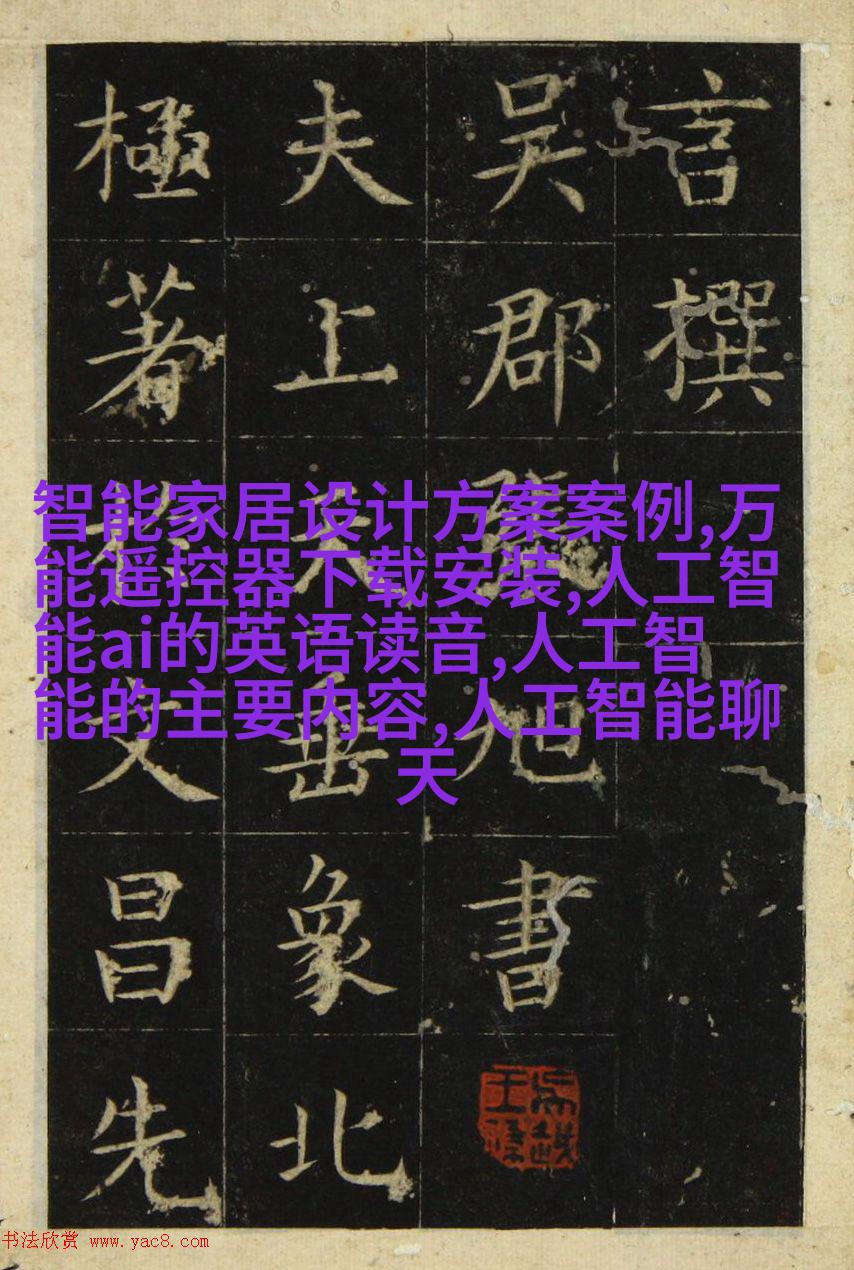 言撰
吳郡旭書
夫上垂象北
極著文昌先
智能家居设计方案案例,万
能遥控器下载安装,人工智
能ai的英语读音,人工智
能的主要内容,人工智能聊
天
书法欣赏 www.yac8.com